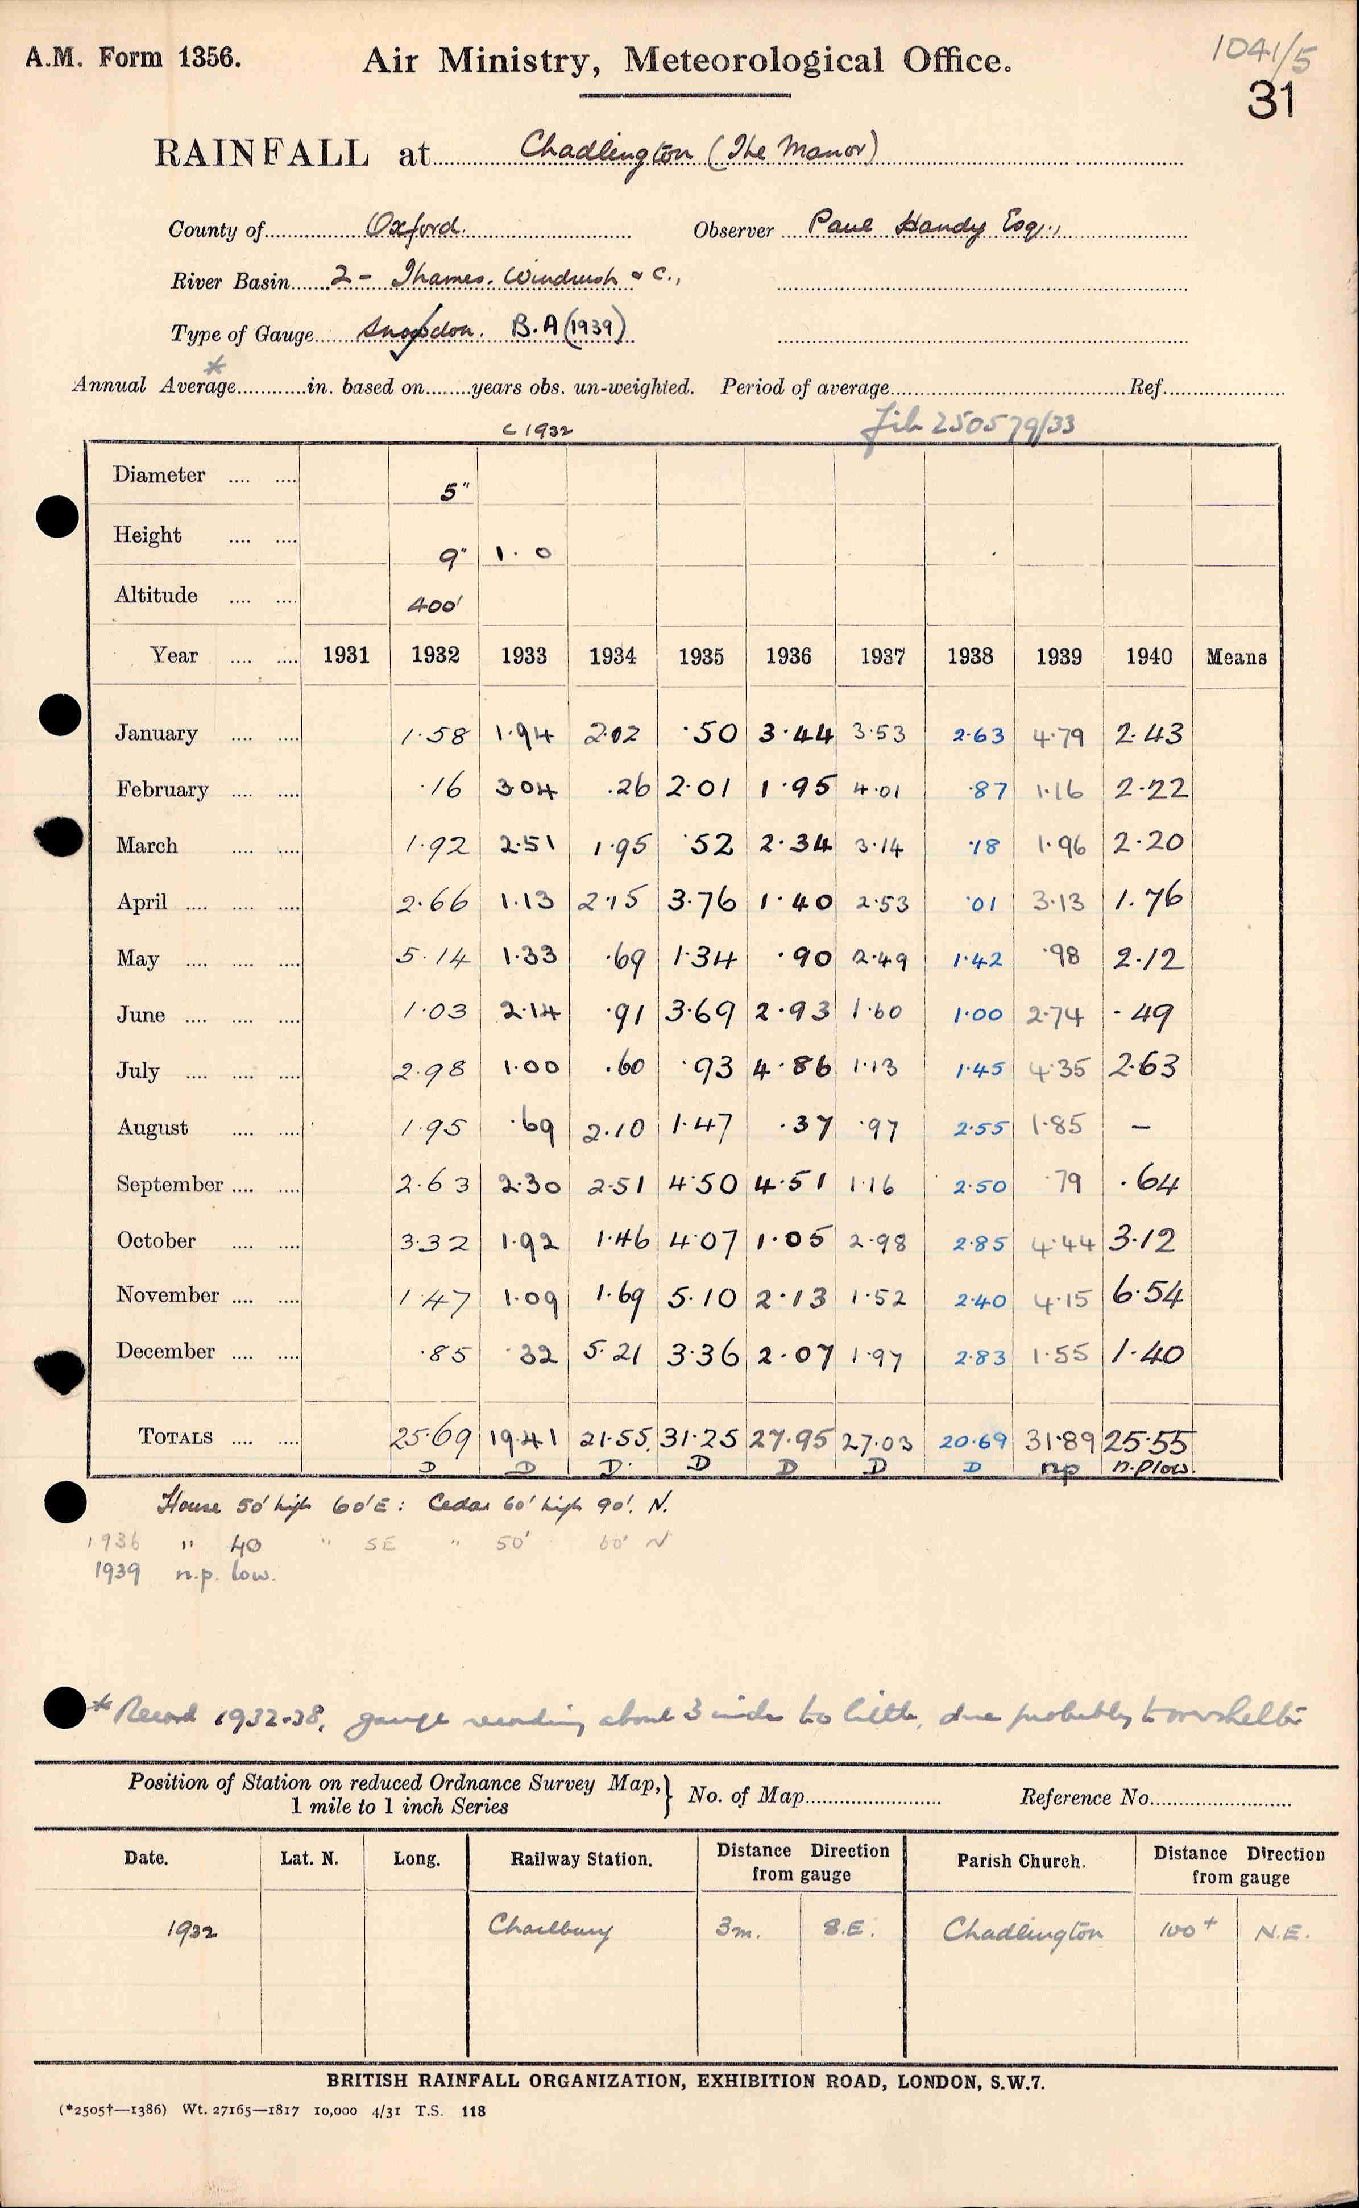 A.M. Form 1356. Air Ministry, Meteorological Office. 1041/5
31
RAINFALL at Chadlington (The Manor)
County of Oxford. Observer Paul Handy Esq.,
River Basin 2 - Thames. Windrush & C.,
Type of Gauge Snowdon. B.A (1939)
*
Annual Average in. based on years obs. un-weighted. Period of average Ref.
c 1932 250579/33
Diameter 5"
Height 9" 1.0
Altitude 400'
Year 1931 1932 1933 1934 1935 1936 1937 1938 1939 1940 Means
January 1.58 1.94 2.02 .50 3.44 3.53 2.63 4.79 2.43
February .16 3.04 .26 2.01 1.95 4.01 .87 1.16 2.22
March 1.92 2.51 1.95 .52 2.34 3.14 .18 1.96 2.20
April 2.66 1.13 2.15 3.76 1.40 2.53 .01 3.13 1.76
May 5.14 1.33 .69 1.34 .90 2.49 1.42 .98 2.12
June 1.03 2.14 .91 3.69 2.93 1.60 1.00 2.74 .49
July 2.98 1.00 .60 .93 4.86 1.13 1.45 4.35 2.63
August 1.95 .69 2.10 1.47 .37 .97 2.55 1.85 —
September 2.63 2.30 2.51 4.50 4.51 1.16 2.50 .79 .64
October 3.32 1.92 1.46 4.07 1.05 2.98 2.85 4.44 3.12
November 1.47 1.09 1.69 5.10 2.13 1.52 2.40 4.15 6.54
December .85 .32 5.21 3.36 2.07 1.97 2.83 1.55 1.40
TOTALS 25.69 19.41 21.55. 31.25 27.95 27.03 20.69 31.89 25.55
D D D. D D D D np n.p low.
House 50' high 60' E: Cedar 60' high 90'. N.
1936 " 40 " SE " 50' 60' N
1939 n.p. low.
* Record 1932-38, gauge recording about 3 inches too little, due probably to overshelter
Position of Station on reduced Ordnance Survey Map, } No. of Map Reference No.
1 mile to 1 inch Series
Date. Lat. N. Long. Railway Station. Distance Direction from gauge Parish Church. Distance Direction from gauge
1932 Charlbury 3m. S.E. Chadlington 100+ N.E.
BRITISH RAINFALL ORGANIZATION, EXHIBITION ROAD, LONDON, S.W.7.
(*2505†—1386) Wt. 27165—1817 10,000 4/31 T.S. 118